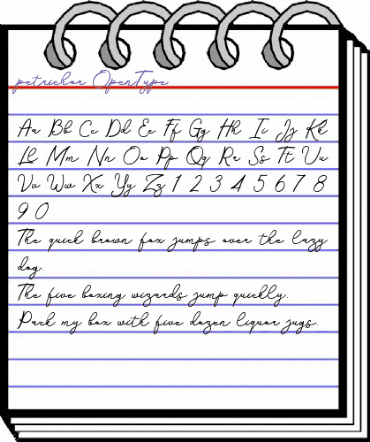 petrichor OpenType
Aa Bb Cc Dd Ee Ff Gg Hh Ii Jj Kk
Ll Mm Nn Oo Pp Qq Rr Ss Tt Uu
Vv Ww Xx Yy Zz 1 2 3 4 5 6 7 8
9 0
The quick brown fox jumps over the lazy
dog.
The five boxing wizards jump quickly.
Pack my box with five dozen liquor jugs.